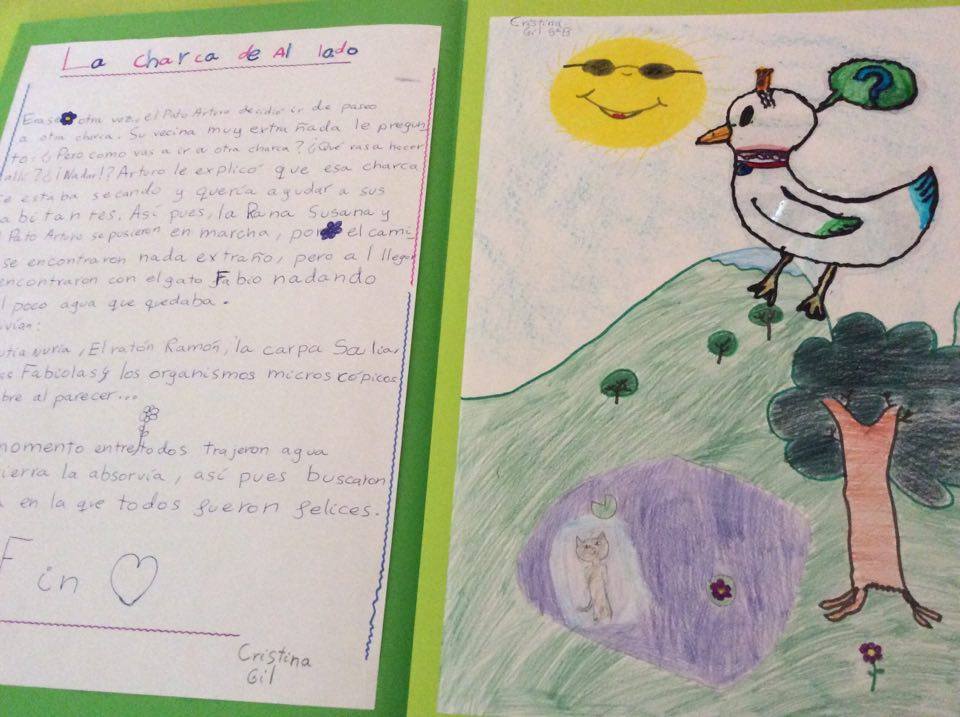 La charca de Al lado
Erase otra vez, el Pato Arturo decidió ir de paseo
a otra charca. Su vecina muy extrañada le pregun
tó: ¿Pero como vas a ir a otra charca? ¿Qué vas a hacer
allí? ¿¡Nadar!? Arturo le explicó que esa charca
se estaba secando y quería ayudar a sus
abitantes. Así pues, la Rana Susana y
Pato Arturo se pusieron en marcha, por el cami
se encontraron nada extraño, pero al llegar
encontraron con el gato Fabio nadando
poco agua que quedaba.
vivían:
Nuria, El ratón Ramón, la carpa
Fabiolas y los organismos microscópicos
al parecer...
momento entre todos trajeron agua
tierra la absorvía, así pues buscaron
en la que todos fueron felices.
Fin
Cristina
Gil
Cristina
Gil 5ºB
?